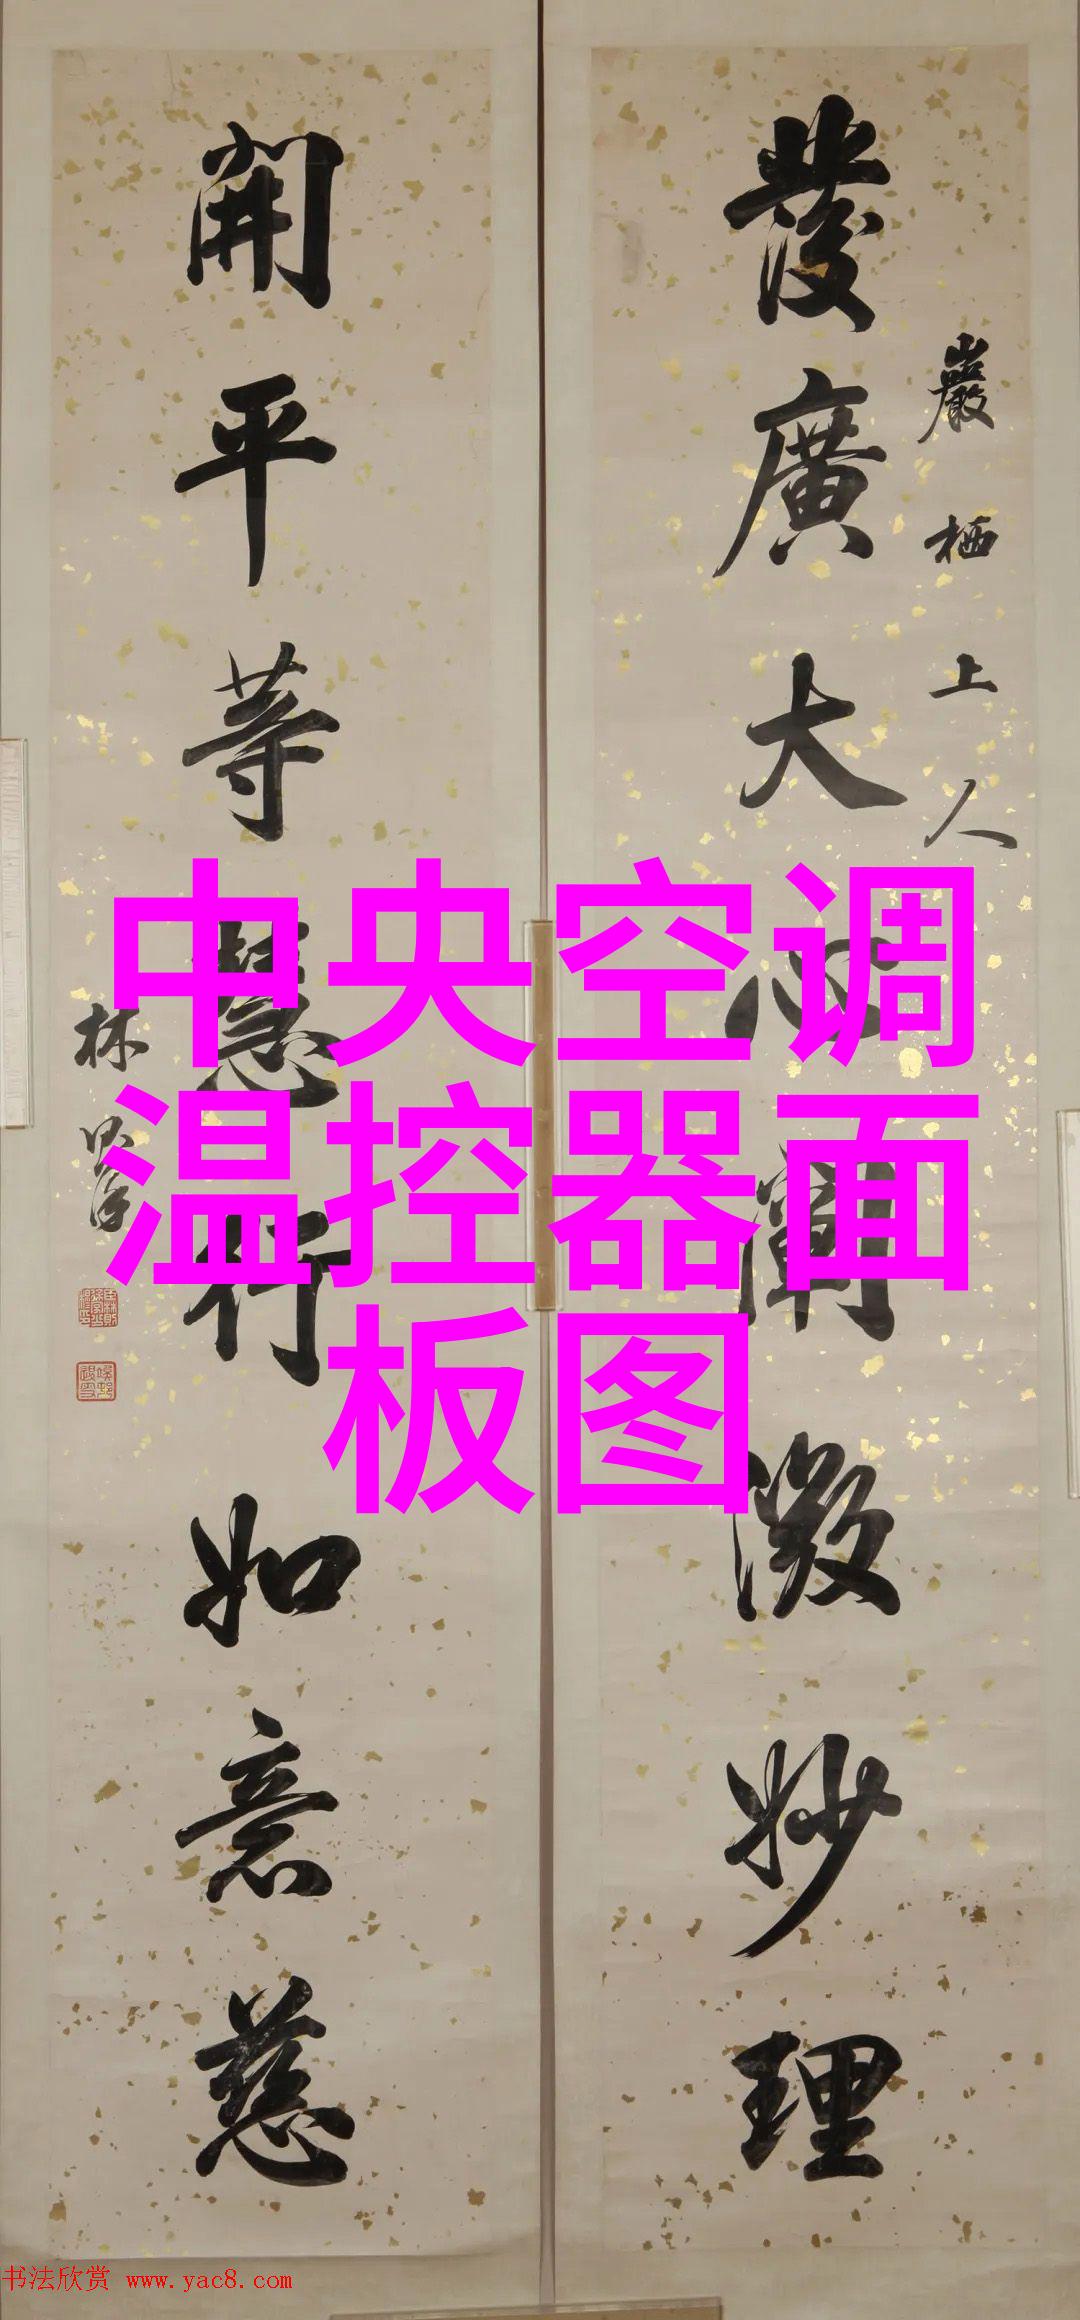 巖栖上人
發廣大心闡微妙理
開平等慧行如意慈
林則徐
中央空调
温控器面
板图
书法欣赏 www.yac8.com